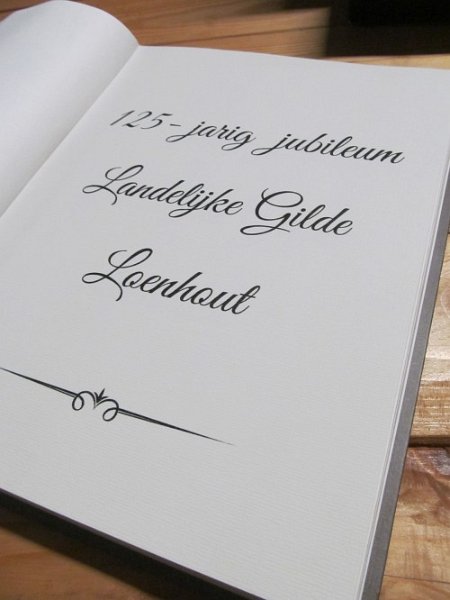 125-jarig jubileum
Landelijke Gilde
Loenhout